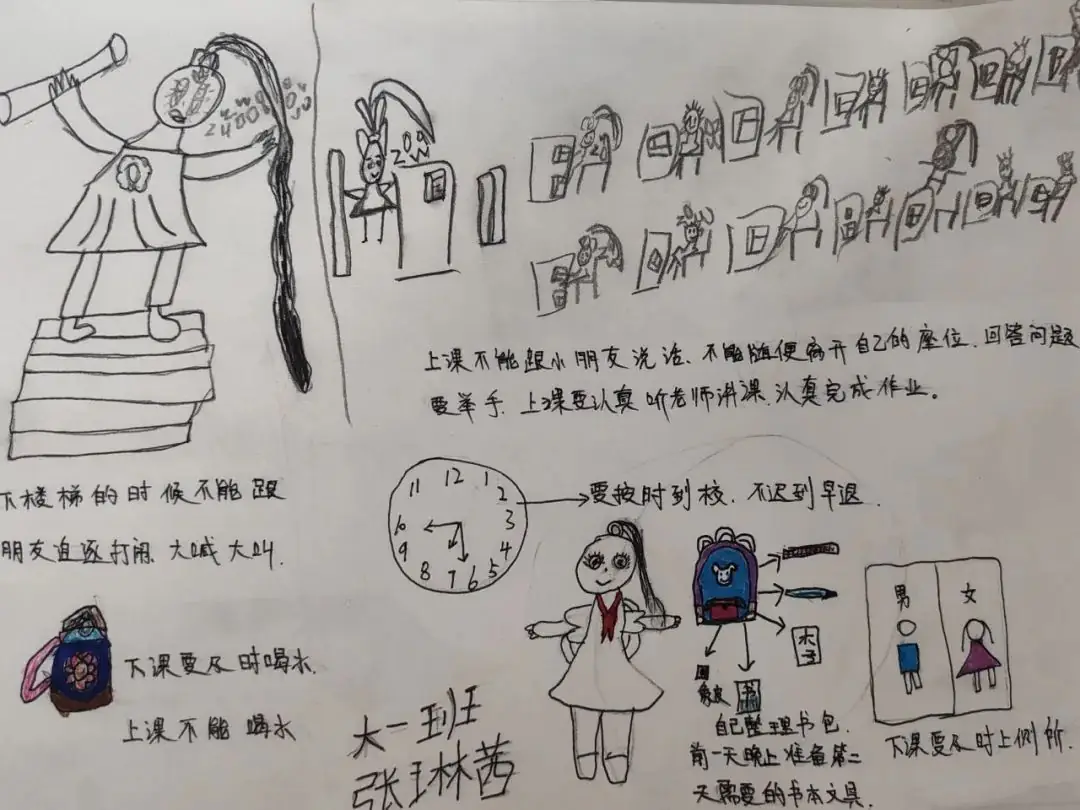 上课不能跟小朋友说话、不能随便离开自己的座位、回答问题
要举手、上课要认真听老师讲课、认真完成作业。
下楼梯的时候不能跟
朋友追逐打闹、大喊大叫.
11 12 1
2
10
3
9
4
8 7 6 5
要按时到校、不迟到早退.
下课要及时喝水
上课不能喝水
大一班
张琳茜
本子
橡皮
书
自己整理书包.
前一天晚上准备第二
天需要的书本文具.
男 女
下课要及时上侧所.